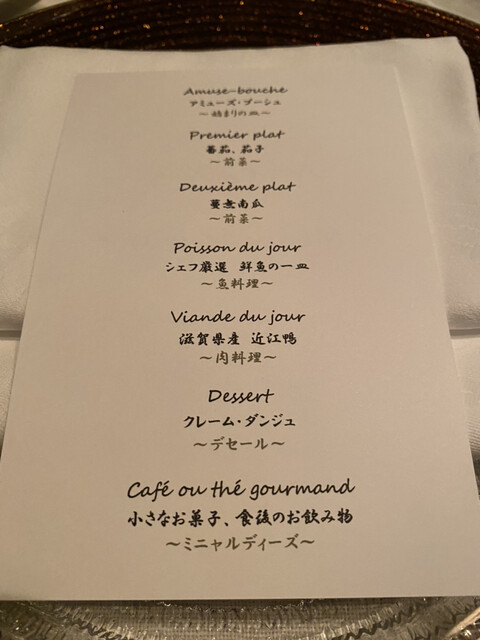 Amuse-bouche
アミューズ・ブーシュ
～始まりの皿～
Premier plat
蕃茄、茄子
～前菜～
Deuxième plat
蔓無南瓜
～前菜～
Poisson du jour
シェフ厳選 鮮魚の一皿
～魚料理～
Viande du jour
滋賀県産 近江鴨
～肉料理～
Dessert
クレーム・ダンジュ
～デセール～
Café ou thé gourmand
小さなお菓子、食後のお飲み物
～ミニャルディーズ～